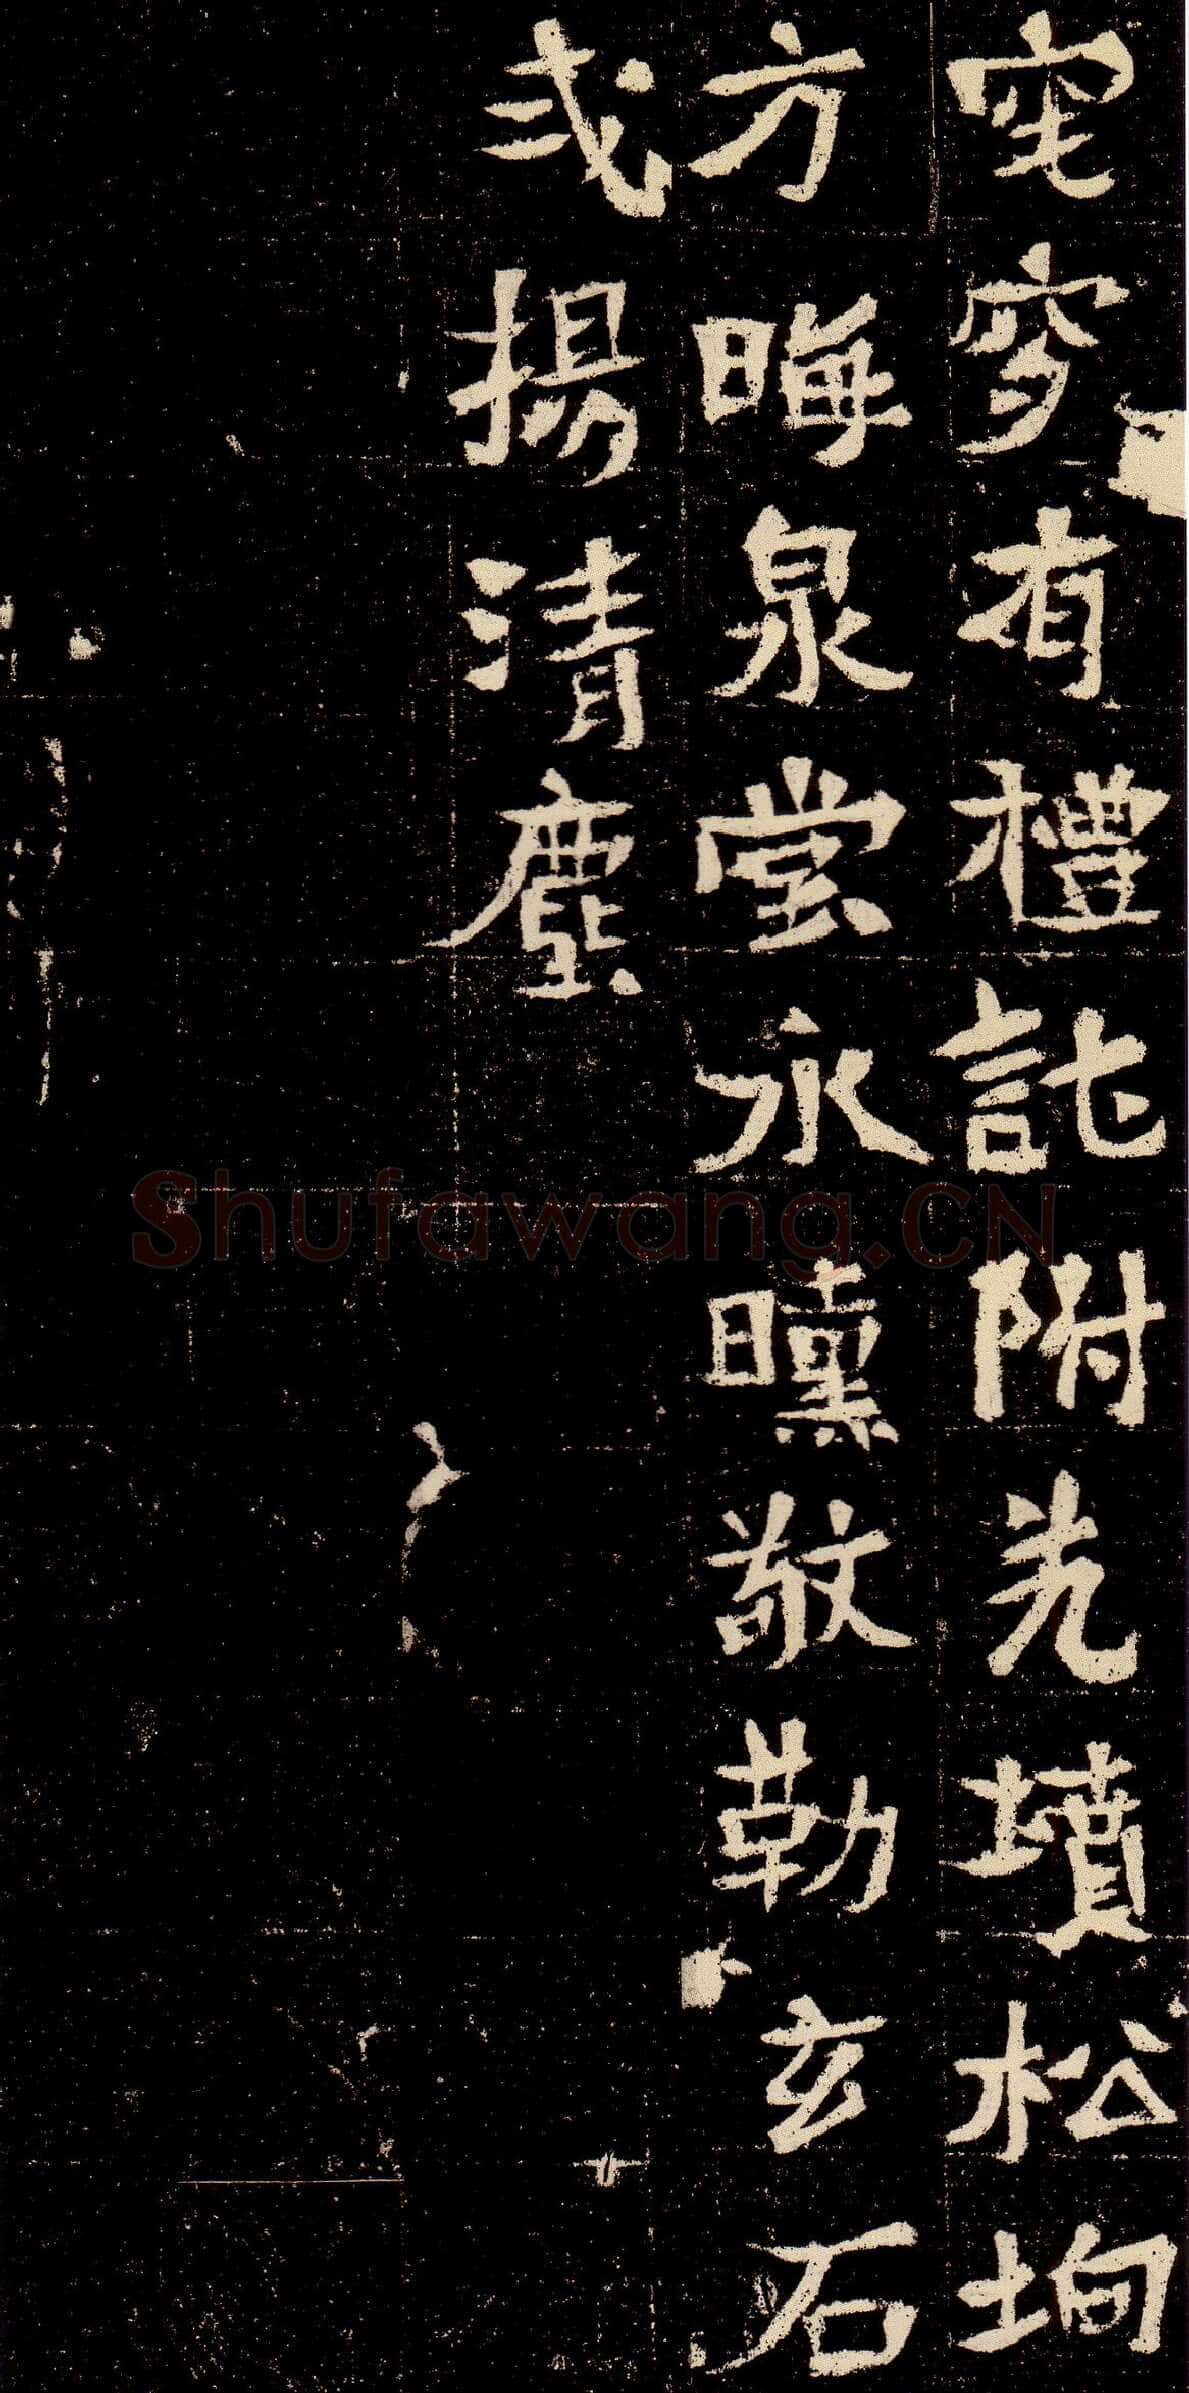 窀穸有禮託附光墳松坰
方晦泉堂永曛敬勒玄石
式揚清塵
Shufawang.CN